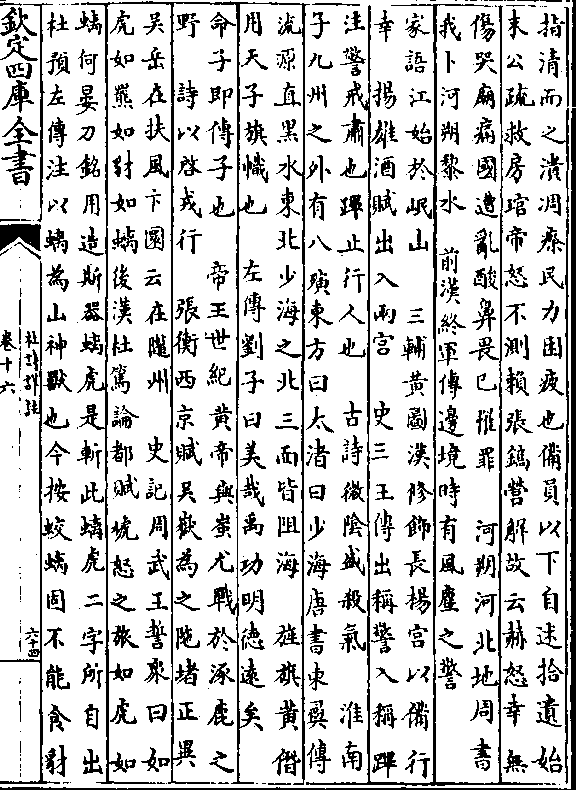 指清而之潰凋瘵民力困疲也備員以下自述拾遺始
末公疏救房琯帝怒不測賴張鎬營解故云赫怒幸無
傷哭廟痛國遭亂酸鼻畏已惟罪　河朔河北地周書
我卜河朔黎水　前漢終軍傳邊境時有風塵之警
家語江始於岷山　三輔黄圖漢修飾長楊宫以備行
幸　揚雄酒賦出入兩宫　史三王傳出稱警入稱蹕
注警戒肅也蹕止行人也　古詩微陰盛殺氣　淮南
子九州之外有八殥東方曰大渚曰少海唐書東夷傳
流源直黒水東北少海之北三面皆阻海　旌旗黄僭
用天子旗幟也　左傳劉子曰美哉禹功明德逺矣
命子即傳子也　帝王世紀黄帝與蚩尤戰於涿鹿之
野　詩以啓戎行　張衡西京賦吴嶽為之陁堵正異
吴岳在扶風卞圜云在隴州　史記周武王誓衆曰如
虎如羆如豺如螭後漢杜篤論都賦虓怒之旅如虎如
螭何晏刀銘用造斯器螭虎是斬此螭虎二字所自出
杜預左傳注以螭為山神獸也今按蛟螭固不能食豺
欽定四庫全書
杜詩詳註
卷十六
六十四